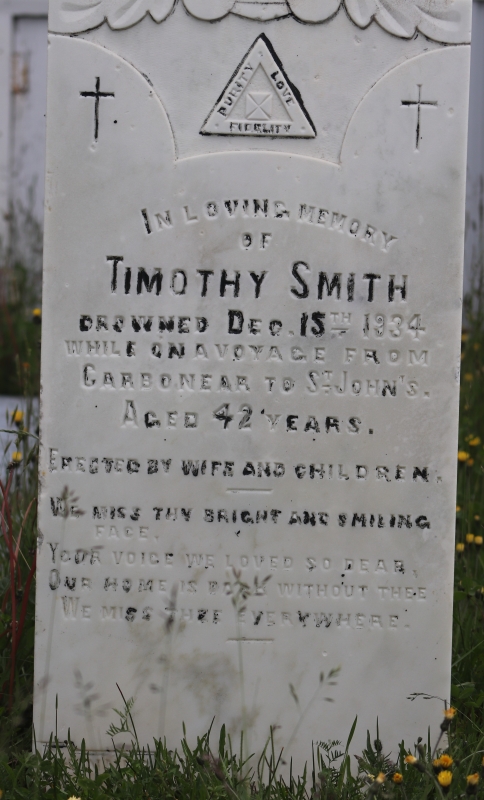 PURITY LOVE
FIDELITY
IN LOVING MEMORY
OF
TIMOTHY SMITH
DROWNED DEC. 15TH 1934
WHILE ON A VOYAGE FROM
CARBONEAR TO ST. JOHN'S.
AGED 42 YEARS.
ERECTED BY WIFE AND CHILDREN.
WE MISS THY BRIGHT AND SMILING
FACE,
YOUR VOICE WE LOVED SO DEAR,
OUR HOME IS WITHOUT THEE
WE MISS THEE EVERYWHERE.